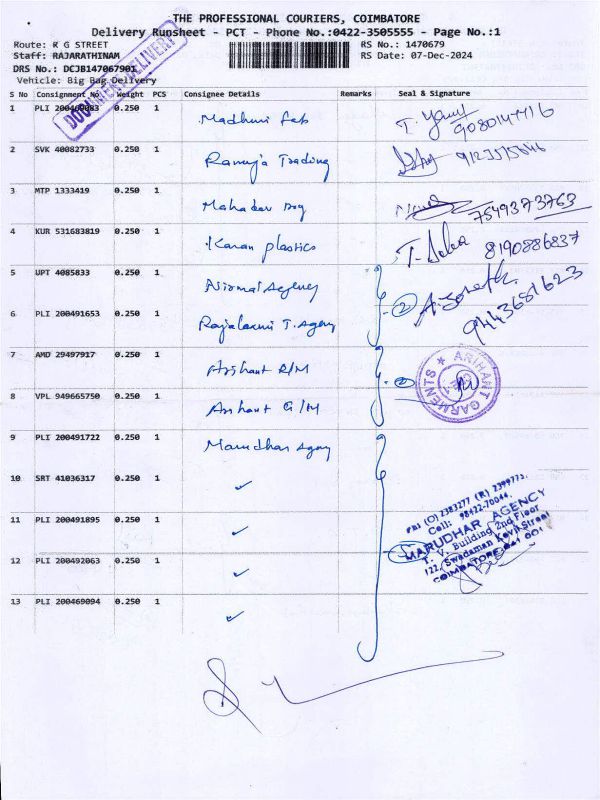 THE PROFESSIONAL COURIERS, COIMBATORE
Delivery Runsheet - PCT - Phone No.:0422-3505555 - Page No.:1
Route: R G STREET
RS No.: 1470679
Staff: RAJARATHINAM
RS Date: 07-Dec-2024
DRS No.: DCJB147067901
Vehicle: Big Bag Delivery
DOCUMENT DELIVERY
S No Consignment No Weight PCS Consignee Details Remarks Seal & Signature
1 PLI 0.250 1 Madhuni Fab 9080147416
2 SVK 40082733 0.250 1 Ramuja Trading
3 MTP 1333419 0.250 1 Mahadev 7549373763
4 KUR 531683819 0.250 1 Karan plastics 8190886837
5 UPT 4085833 0.250 1 Nirmal Agency
6 PLI 200491653 0.250 1 Rajalaxmi T. Agency 2 9443681623
7 AMD 29497917 0.250 1 Arihant R/M
8 VPL 949665750 0.250 1 Arihant G/M
ARIHANT GARMENTS
9 PLI 200491722 0.250 1 Marudhar Agency
10 SRT 41036317 0.250 1 ✓
11 PLI 200491895 0.250 1 ✓
12 PLI 200492063 0.250 1 ✓
13 PLI 200469094 0.250 1 ✓
(O) 2383277 (R) 2399773.
Cell: 98422-70044.
MARUDHAR AGENCY
T. V. Building 2nd Floor
122, Swedaman Kovil Street
COIMBATORE-641 001